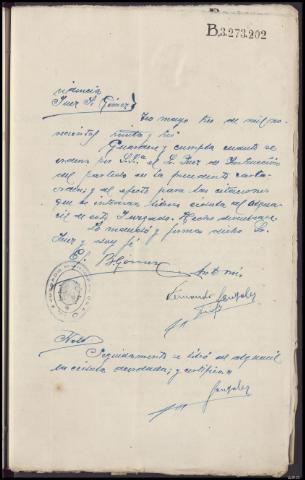 B.3.273.202
videncia
Juez Sr. Gómez
mayo tres de mil no-
vecientos treinta y tres
Guárdese y cumpla cuanto se
ordena por S.Sª el Sr. Juez de Instrucción
del partido en la precedente carta-
orden; y al efecto para las citaciones
que se interesan líbrese cédula al algua-
cil de este Juzgado.
Lo mandó y firma dicho Sr.
Juez y doy fé
B. Gómez
Ante mí
Fernando González
Nota
Seguidamente se libró al alguacil
la cédula acordada; y certifico
González